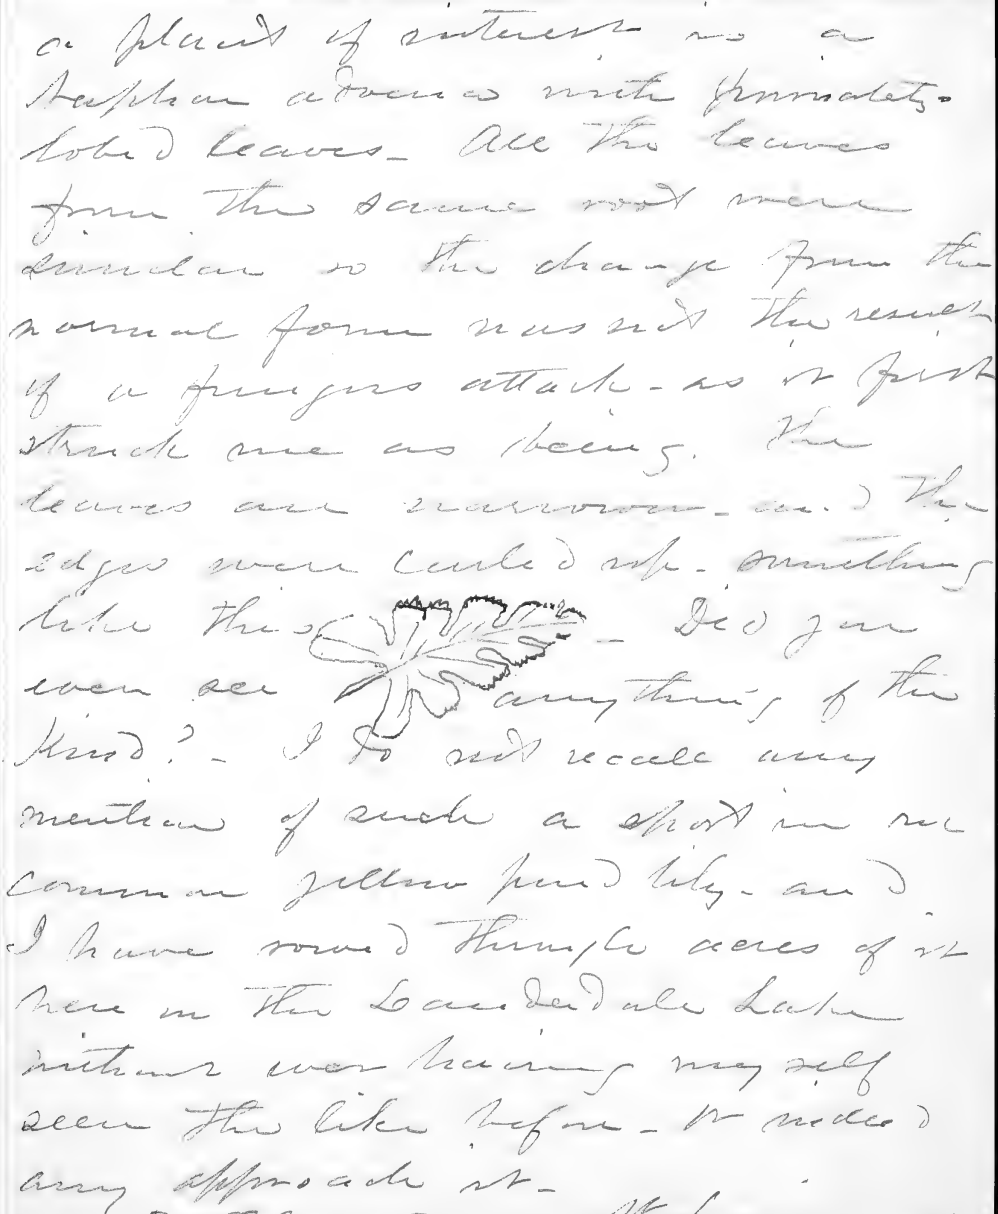 a plant of interest is a
Nuphar advena with pinnately-
lobed leaves - All the leaves
from the same root were
similar so the change from the
normal form was not the result
of a fungus attack - as it first
struck me as being. The
leaves are narrow - and the
edges were curled up - something
like this - Did you
ever see anything of the
kind? - I do not recall any
mention of such a sport in our
common yellow pond lily - and
I have rowed through acres of it
here in the Lauderdale Lake
without ever having myself
seen the like before - or indeed
any approach to it -